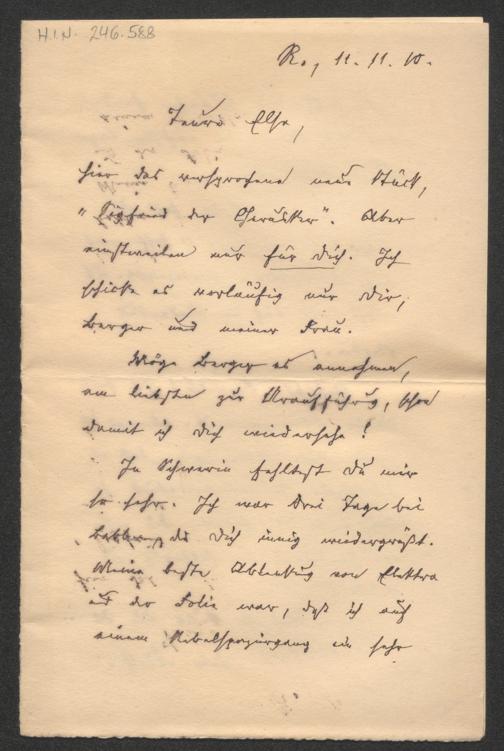 H.I.N. 246.588
R., 11.11.10.
Teure Else,
hier das versprochene neue Stück,
"Sigfried der Cherusker". Aber
einstweilen nur für Dich. Ich
schicke es vorläufig nur Dir,
Berger und meiner Frau.
Möge Berger es annehmen,
am liebsten zur Uraufführung, schon
damit ich Dich wiedersehe!
In Schwerin fehltest Du mir
so sehr. Ich war drei Tage bei
der Dich innig wiedergrüßt.
Meine beste Ablenkung von Elektra
auf der Folie war, daß ich auf
einem Nebelspaziergang ein sehr